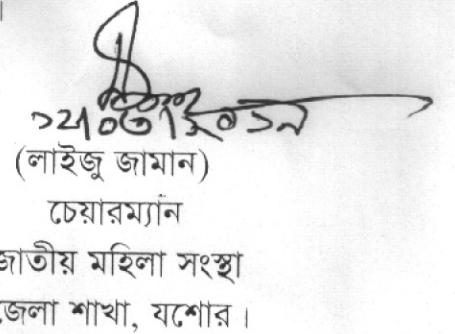 ১২/০৩/২০১৯
(লাইজু জামান)
চেয়ারম্যান
জাতীয় মহিলা সংস্থা
জেলা শাখা, যশোর।